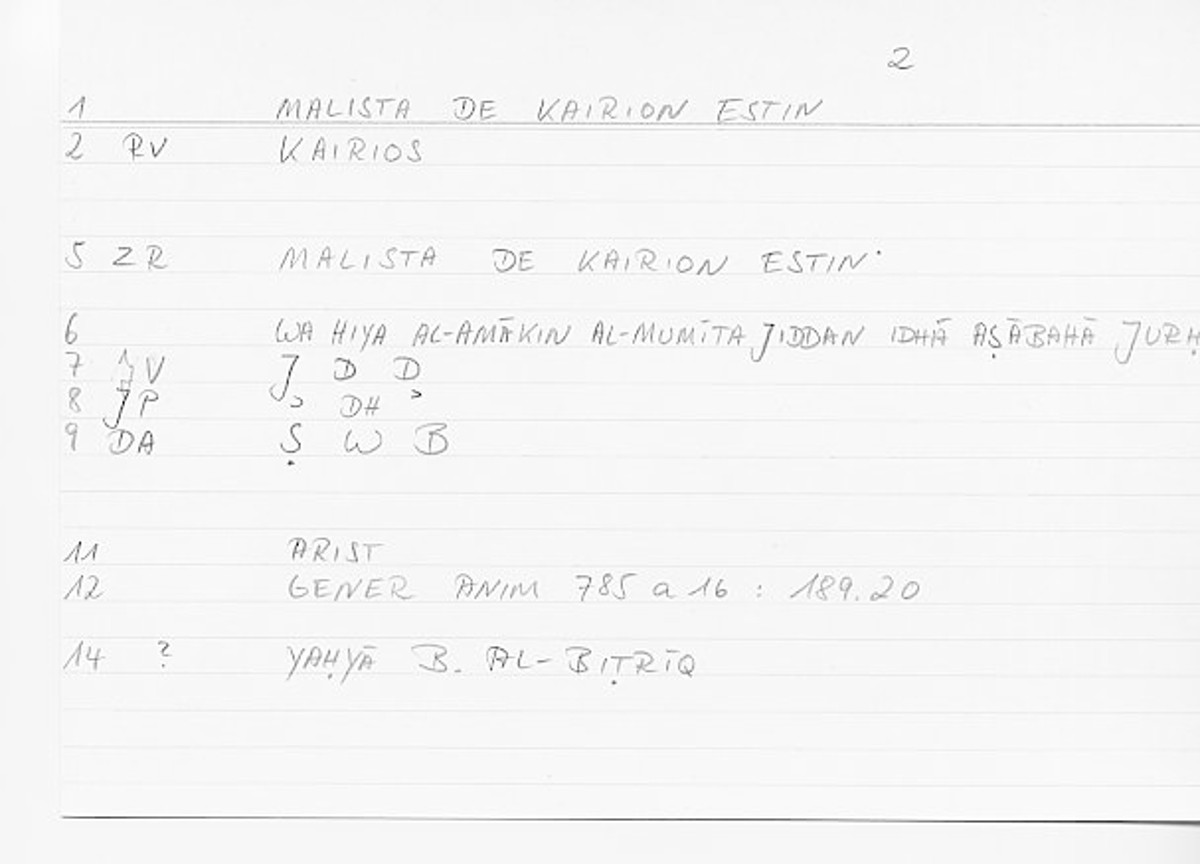 2
1 MALISTA DE KAIRION ESTIN
2 RV KAIRIOS
5 ZR MALISTA DE KAIRION ESTIN·
6 WA HIYA AL-AMĀKIN AL-MUMĪTA JIDDAN IDHĀ AṢĀBAHĀ JURḤ
7 V J D D
8 JP ʾ DH ʾ
9 DA Ṣ W B
11 ARIST
12 GENER ANIM 785 a 16 : 189.20
14 ? YAḤYĀ B. AL-BIṬRĪQ